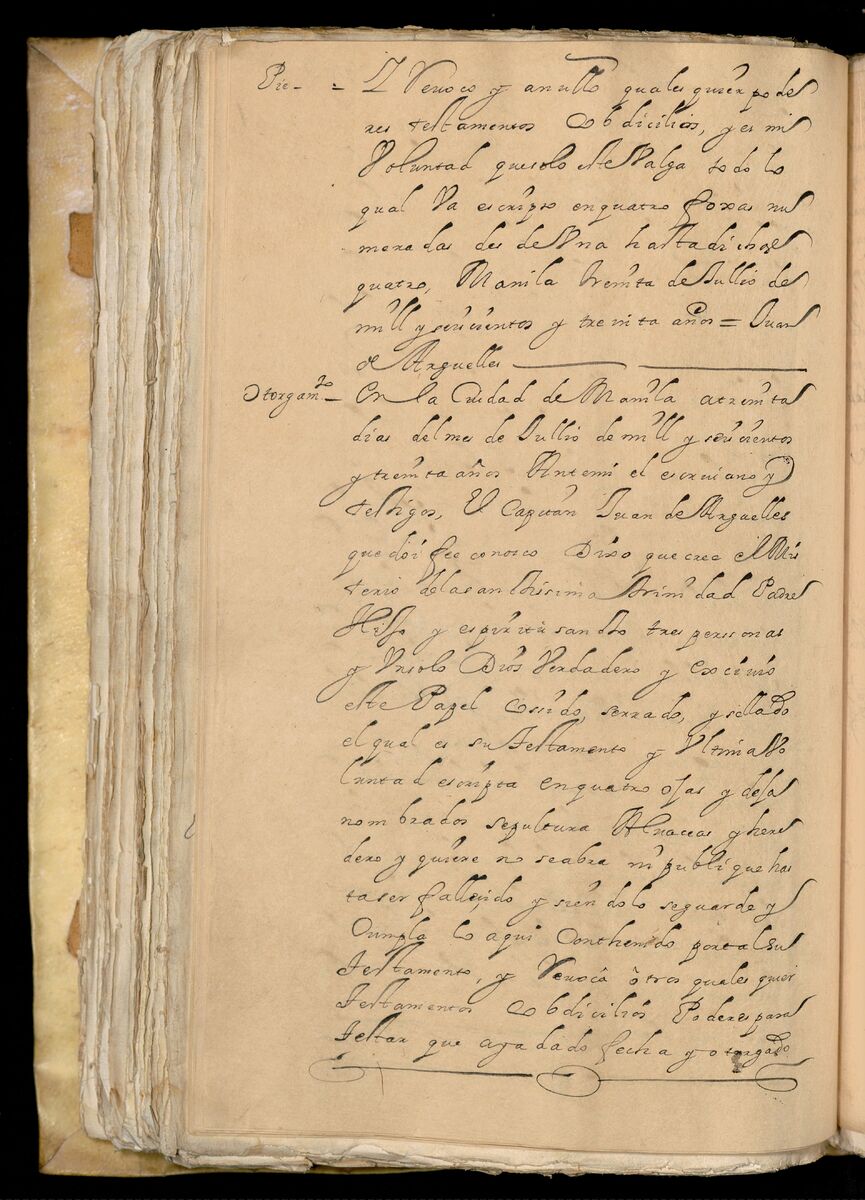 Pie - = Y Revoco y anullo quales quier pode
res testamentos Cobdicilios, y es mi
Voluntad que solo este Valga todo lo
qual Va escripto en quatro foxas nu
meradas desde Vna hasta dichas
quatro, Manila treinta de Jullio de
mill y seiscientos y treinta años = Juan
de Arguelles
Otorgamto - En la Ciudad de Manila a treinta
dias del mes de Jullio de mill y seiscientos
y treinta años Antemi el escriuano y
testigos, El Capitan Juan de Arguelles
que doi fee conosco Dixo que cree el Mis
terio de la santissima trinidad Padre
Hijo y espiritu santo tres personas
y Vn solo Dios Verdadero y exciuio
este Papel Cosido, serrado, y sellado
el qual es su testamento y Vltima Vo
luntad escripta en quatro ojas y dexa
nombrados sepultura Aluaceas y here
dero y quiere no se abra ni publique has
ta ser fallecido y siendolo se guarde y
Cumpla lo aqui Conthenido por tal su
testamento, y Reuoca otros quales quier
testamentos Cobdicilios Poderes para
testar que aya dado fecha y otorgado